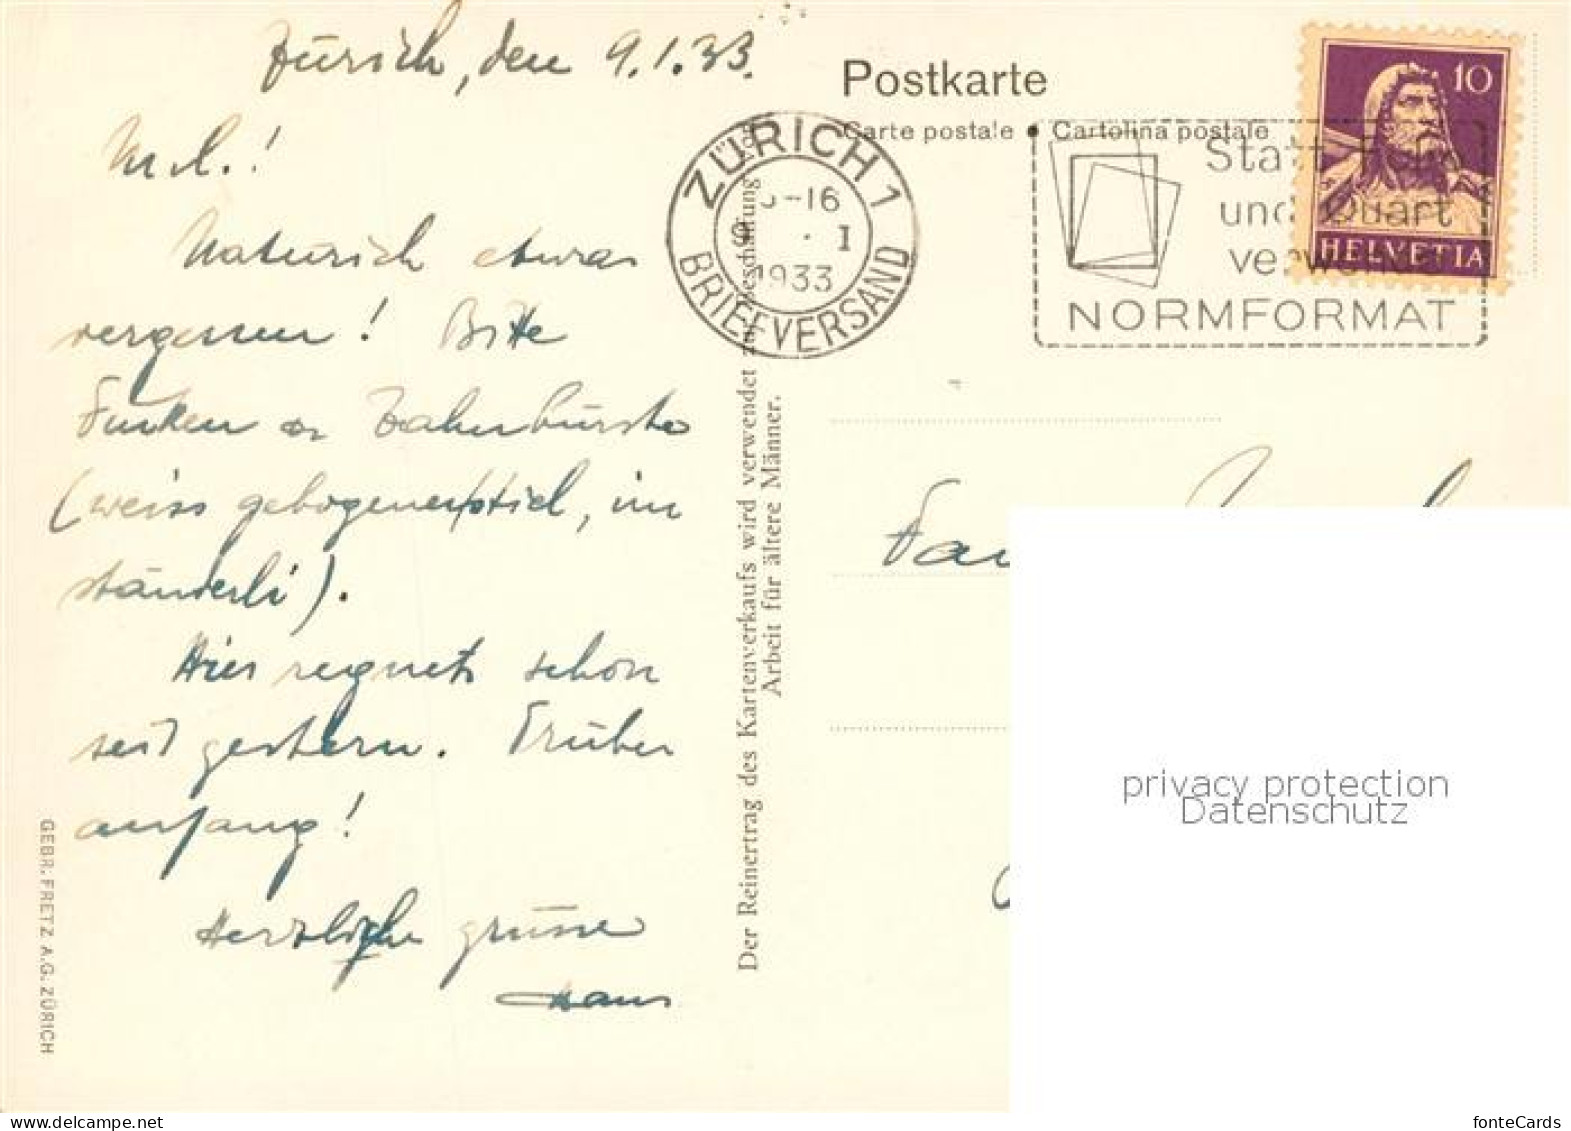 Zürich, den 9.1.33.
M. l.!
Natürich etwas
vergessen! Bitte
Zahnbürste
(weiss gebogener Stiel, im
ständerli).
Hier regnets schon
seit gestern. Trüber
anfang!
Herzliche grüsse
Hans
GEBR. FRETZ A.G. ZÜRICH
Der Reinertrag des Kartenverkaufs wird verwendet zur Beschaffung von
Arbeit für ältere Männer.
Postkarte
Carte postale • Cartolina postale
ZÜRICH 1
-16
9. I
1933
BRIEFVERSAND
Statt Folio
und Quart
verwende
NORMFORMAT
10
HELVETIA
privacy protection
Datenschutz
fonteCards